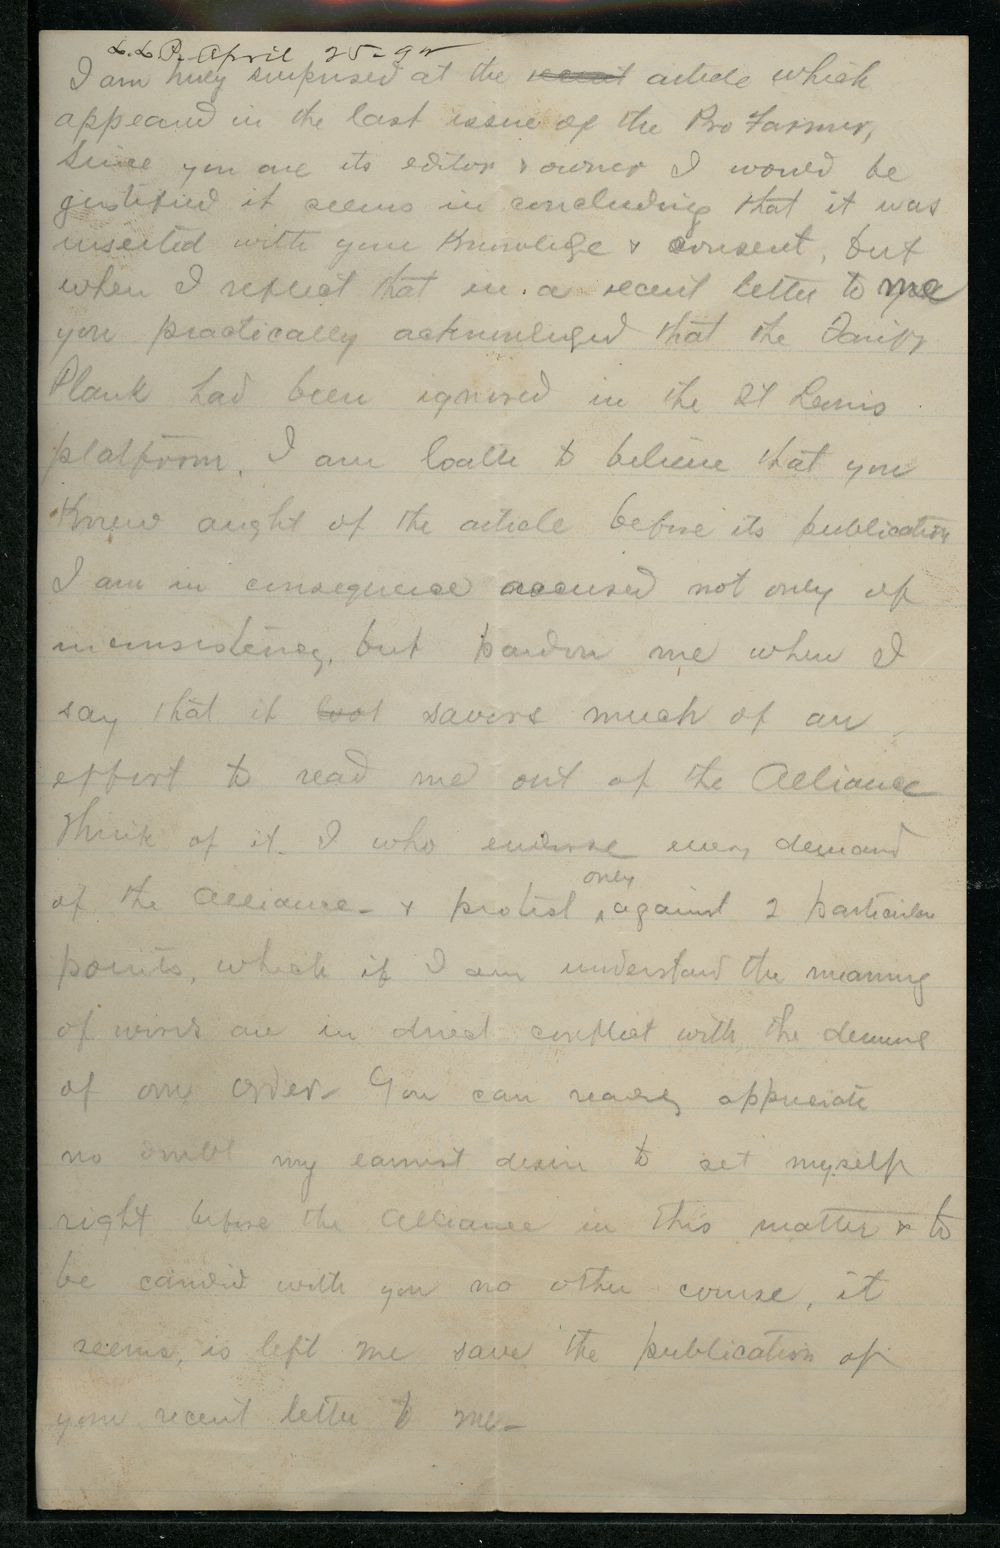 L. L. P. April 25-92
I am truly surprised at the recent article which
appeard in the last issue of the Pro Farmer,
Since you are its editor & owner I would be
justified it seems in concluding that it was
inserted with your knowledge & consent, but
when I reflect that in a recent letter to me
you practically acknowledged that the Tariff
Plank had been ignored in the St Louis
platform. I am loath to believe that you
knew aught of the article before its publication
I am in consequence accused not only of
inconsistency, but pardon me when I
say that it savors much of an
effort to read me out of the Alliance
Think of it. I who endorse every demand
of the Alliance - & protest only against 2 particular
points, which if I can understand the meaning
of words are in direct conflict with the demand
of our order - You can readily appreciate
no doubt my earnest desire to set myself
right before the Alliance in this matter & to
be candid with you no other course, it
seems, is left me save the publication of
your recent letter to me -